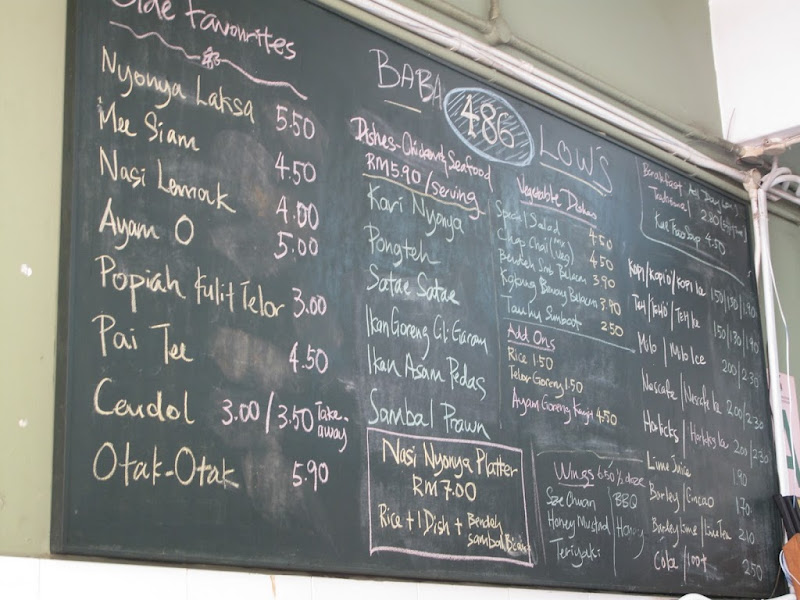 Side Favourites
Nyonya Laksa 5.50
Mee Siam 4.50
Nasi Lemak 4.00
Ayam O 5.00
Popiah Kulit Telor 3.00
Pai Tee 4.50
Cendol 3.00/3.50 Take-away
Otak-Otak 5.90
BABA 486 LOW'S
Dishes-Chicken & Seafood
RM5.90/serving
Kari Nyonya
Pongteh
Satae Satae
Ikan Goreng Cili Garam
Ikan Asam Pedas
Sambal Prawn
Nasi Nyonya Platter
RM7.00
Rice + 1 Dish + Bendeh
Vegetable Dishes
Special Salad 4.50
Chap Chai 4.50
Bendeh Belacan 3.90
Belacan 3.90
2.50
Add Ons
Rice 1.50
Telor Goreng 1.50
Ayam Goreng 4.50
Wings 6.50 ½ doze
Sze Chuan BBQ
Honey Mustad Honey
Teriyaki
Breakfast All Day
Traditional 2.80
4.50
Kopi/Kopi O/Kopi Ice 150/130/1.90
Teh/Teh O/Teh Ice 150/130/1.90
Milo/Milo Ice 200/2.30
Nescafe/Nescafe Ice 200/2.30
Horlicks/Horlicks Ice 200/2.30
Lime Juice 1.90
Barley/Cincao 1.70
Barley Lime/Lime Tea 2.10
Coke/100+ 2.50